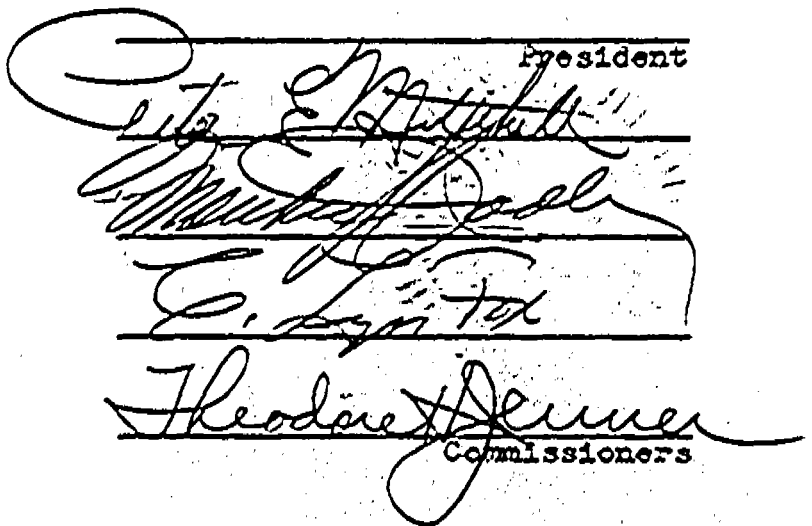 President
Peter E. Mitchell
C. Lyn Fox
Theodore H. Jenner
Commissioners